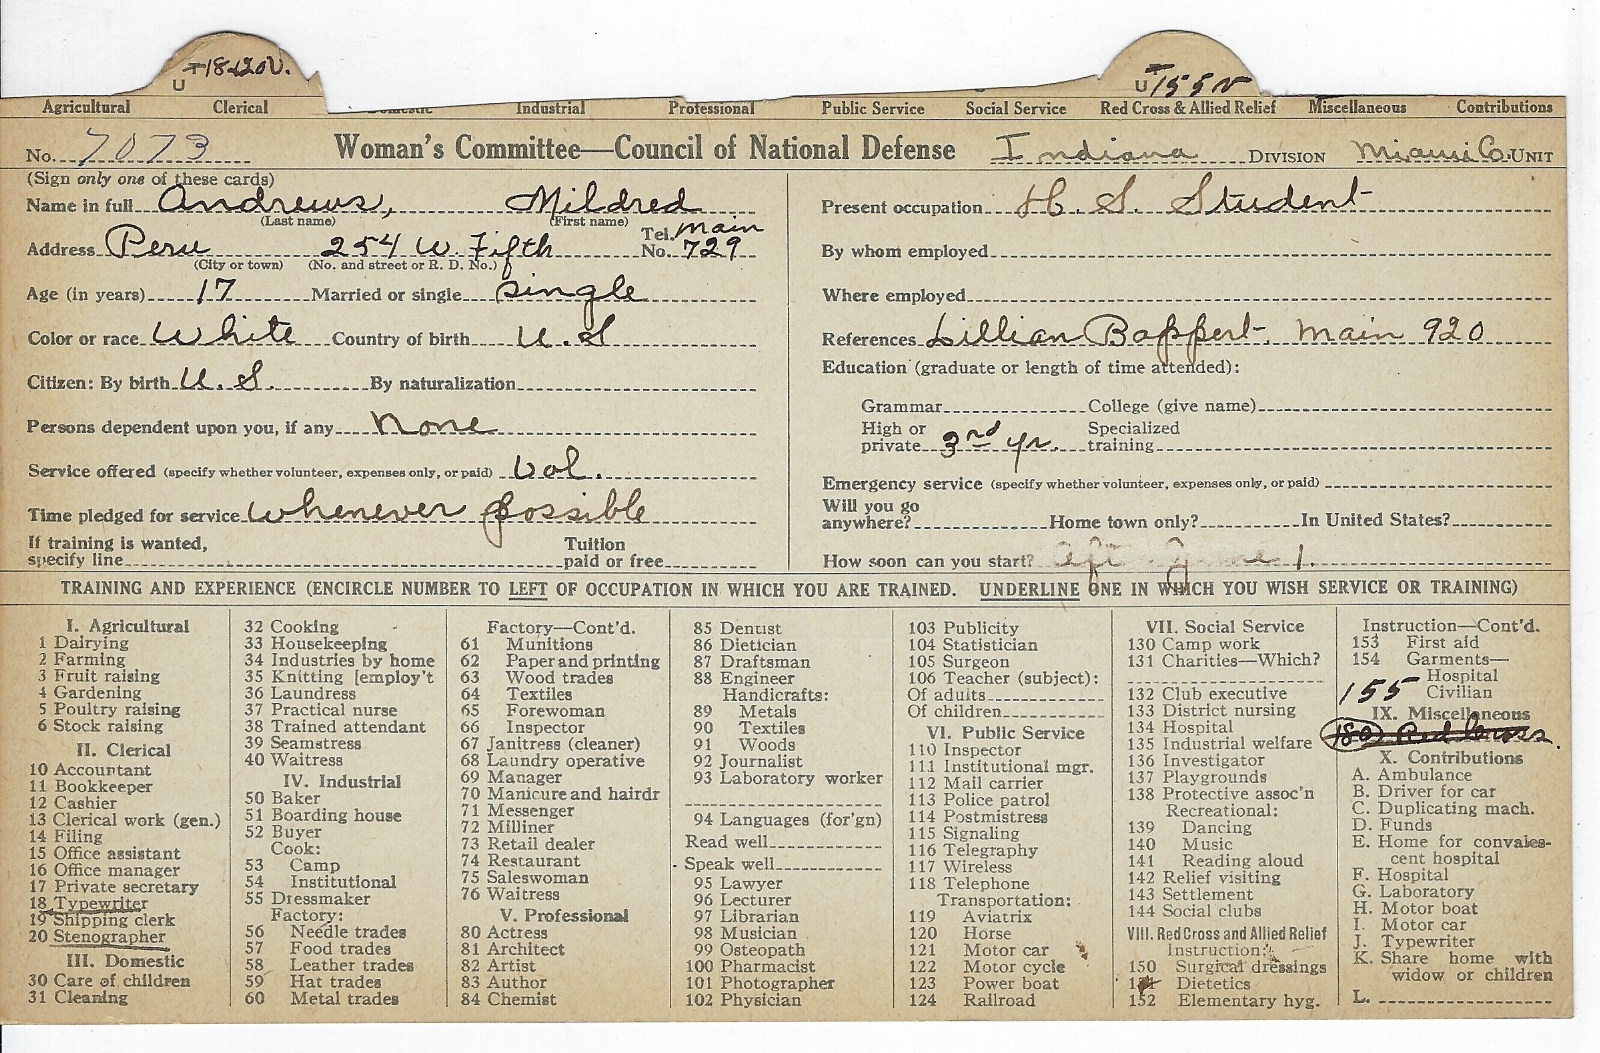 U T 18-20V.
U T 155 V
Agricultural Clerical Domestic Industrial Professional Public Service Social Service Red Cross & Allied Relief Miscellaneous Contributions
No. 7073 Woman's Committee—Council of National Defense Indiana DIVISION Miami Co. UNIT
(Sign only one of these cards)
Name in full Andrews, Mildred
(Last name) (First name)
Address Peru 254 W. Fifth Tel. No. Main 729
(City or town) (No. and street or R. D. No.)
Age (in years) 17 Married or single single
Color or race White Country of birth U.S
Citizen: By birth U.S. By naturalization
Persons dependent upon you, if any none
Service offered (specify whether volunteer, expenses only, or paid) vol.
Time pledged for service whenever possible
If training is wanted, specify line Tuition paid or free
Present occupation H. S. Student
By whom employed
Where employed
References Lillian Bappert. Main 920
Education (graduate or length of time attended):
Grammar College (give name)
High or private 3rd yr. Specialized training
Emergency service (specify whether volunteer, expenses only, or paid)
Will you go anywhere? Home town only? In United States?
How soon can you start? Aft June 1.
TRAINING AND EXPERIENCE (ENCIRCLE NUMBER TO LEFT OF OCCUPATION IN WHICH YOU ARE TRAINED. UNDERLINE ONE IN WHICH YOU WISH SERVICE OR TRAINING)
I. Agricultural
1 Dairying
2 Farming
3 Fruit raising
4 Gardening
5 Poultry raising
6 Stock raising
II. Clerical
10 Accountant
11 Bookkeeper
12 Cashier
13 Clerical work (gen.)
14 Filing
15 Office assistant
16 Office manager
17 Private secretary
18 Typewriter
19 Shipping clerk
20 Stenographer
III. Domestic
30 Care of children
31 Cleaning
32 Cooking
33 Housekeeping
34 Industries by home
35 Knitting [employ't
36 Laundress
37 Practical nurse
38 Trained attendant
39 Seamstress
40 Waitress
IV. Industrial
50 Baker
51 Boarding house
52 Buyer
Cook:
53 Camp
54 Institutional
55 Dressmaker
Factory:
56 Needle trades
57 Food trades
58 Leather trades
59 Hat trades
60 Metal trades
Factory—Cont'd.
61 Munitions
62 Paper and printing
63 Wood trades
64 Textiles
65 Forewoman
66 Inspector
67 Janitress (cleaner)
68 Laundry operative
69 Manager
70 Manicure and hairdr
71 Messenger
72 Milliner
73 Retail dealer
74 Restaurant
75 Saleswoman
76 Waitress
V. Professional
80 Actress
81 Architect
82 Artist
83 Author
84 Chemist
85 Dentist
86 Dietician
87 Draftsman
88 Engineer
Handicrafts:
89 Metals
90 Textiles
91 Woods
92 Journalist
93 Laboratory worker
94 Languages (for'gn)
Read well
Speak well
95 Lawyer
96 Lecturer
97 Librarian
98 Musician
99 Osteopath
100 Pharmacist
101 Photographer
102 Physician
103 Publicity
104 Statistician
105 Surgeon
106 Teacher (subject):
Of adults
Of children
VI. Public Service
110 Inspector
111 Institutional mgr.
112 Mail carrier
113 Police patrol
114 Postmistress
115 Signaling
116 Telegraphy
117 Wireless
118 Telephone
Transportation:
119 Aviatrix
120 Horse
121 Motor car
122 Motor cycle
123 Power boat
124 Railroad
VII. Social Service
130 Camp work
131 Charities—Which?
132 Club executive
133 District nursing
134 Hospital
135 Industrial welfare
136 Investigator
137 Playgrounds
138 Protective assoc'n
Recreational:
139 Dancing
140 Music
141 Reading aloud
142 Relief visiting
143 Settlement
144 Social clubs
VIII. Red Cross and Allied Relief
Instruction:
150 Surgical dressings
Dietetics
152 Elementary hyg.
Instruction—Cont'd.
153 First aid
154 Garments—
Hospital
155 Civilian
IX. Miscellaneous
180 Red Cross.
X. Contributions
A. Ambulance
B. Driver for car
C. Duplicating mach.
D. Funds
E. Home for convales-
cent hospital
F. Hospital
G. Laboratory
H. Motor boat
I. Motor car
J. Typewriter
K. Share home with
widow or children
L.